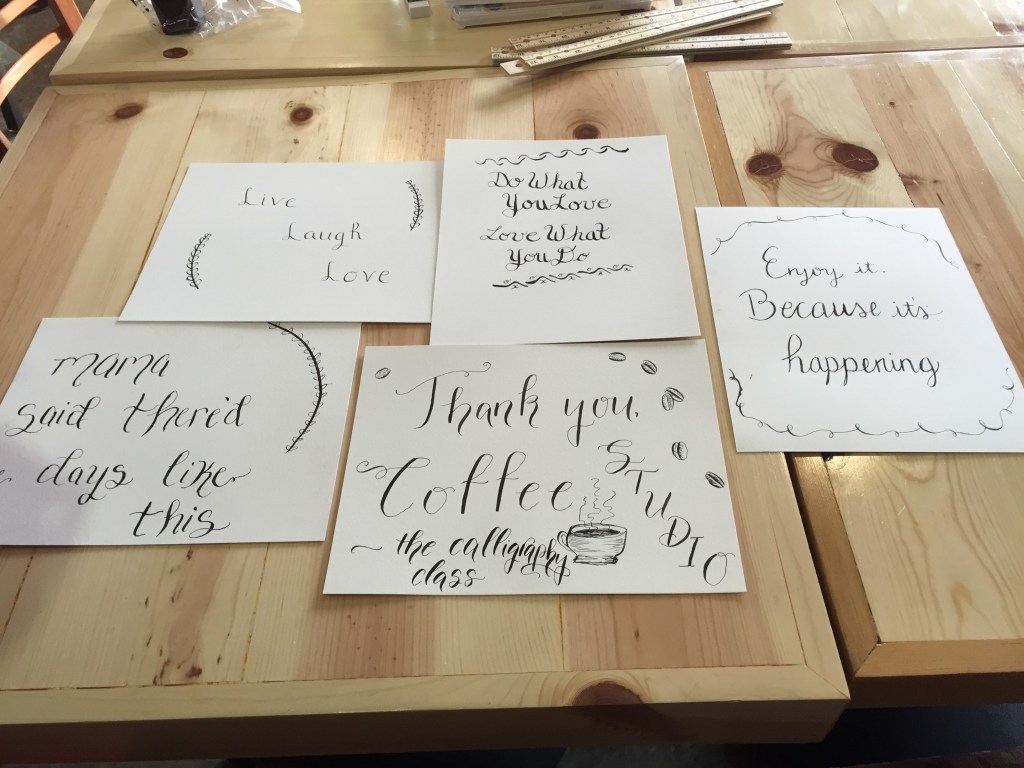 Live
Laugh
Love
Do What
You Love
Love What
You Do
Enjoy it.
Because it's
happening
mama
said there'd
days like
this
Thank you,
Coffee
STUDIO
~ the calligraphy
class